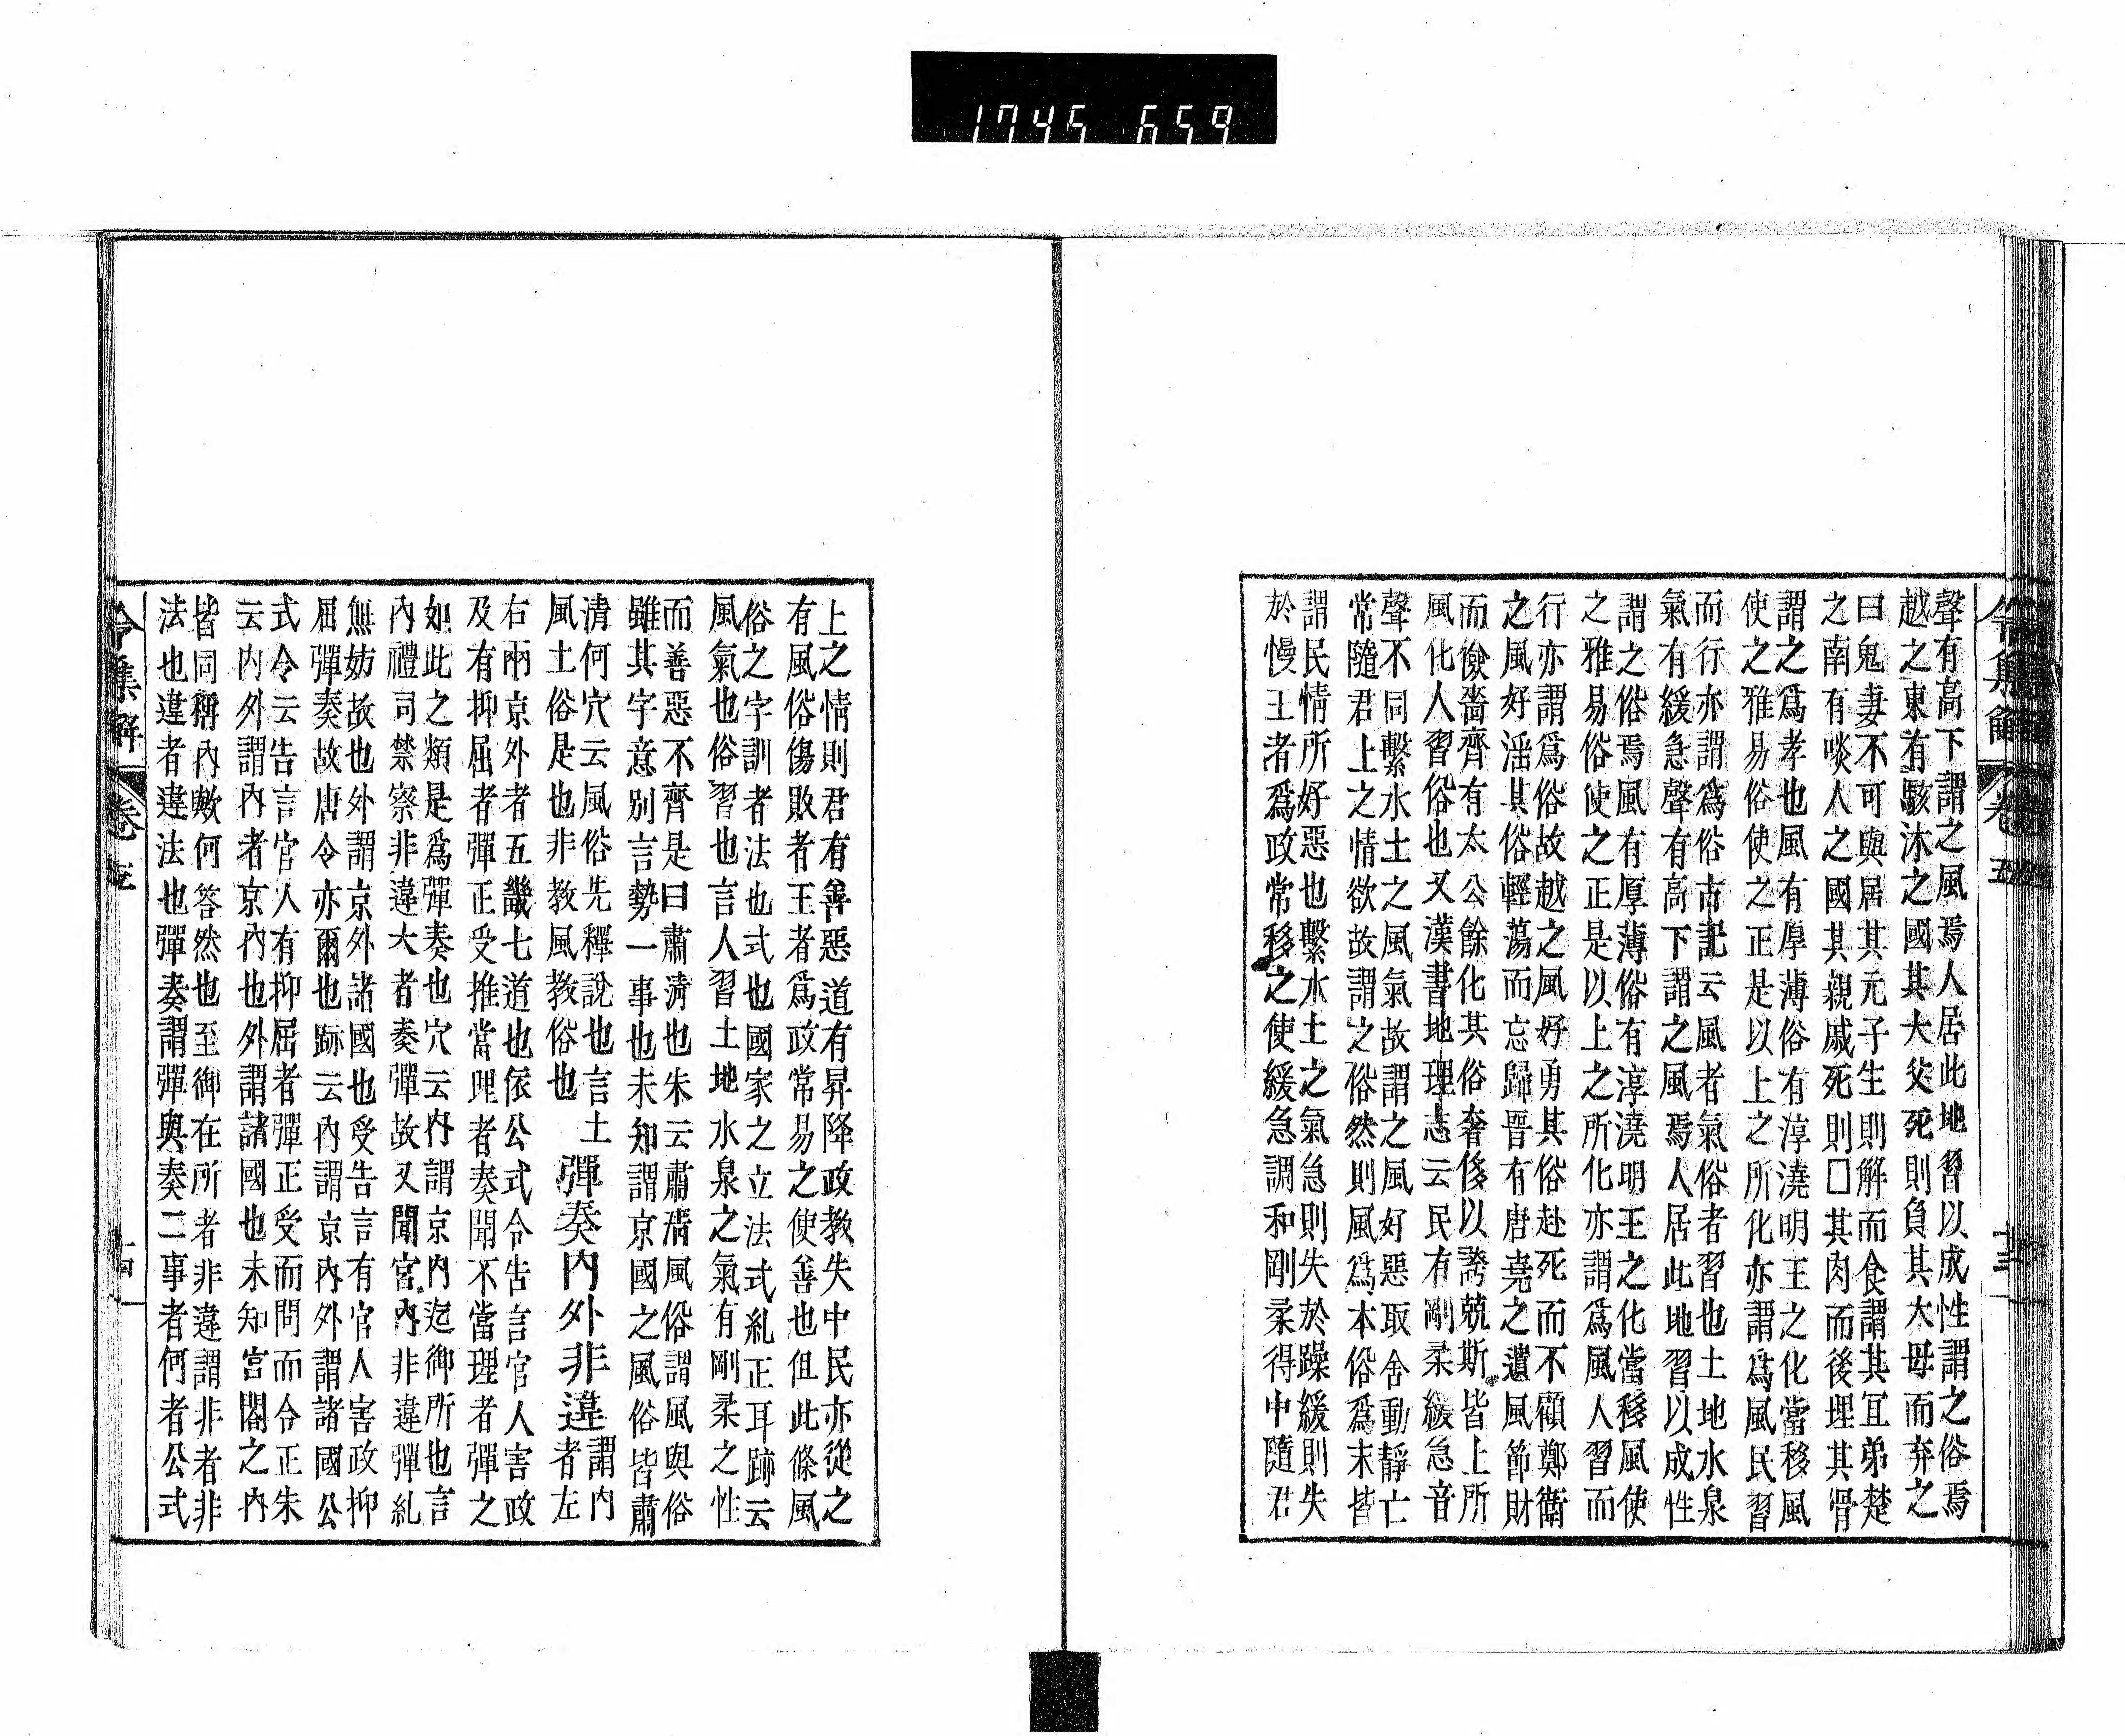 1745 659
令集解 卷五 十三
聲有高下謂之風焉人居此地習以成性謂之俗焉
越之東有駭沐之國其大父死則負其大母而弃之
曰鬼妻不可與居其元子生則解而食謂其宜弟楚
之南有啖人之國其親戚死則□其肉而後埋其骨
謂之爲孝也風有厚薄俗有淳澆明王之化當移風
使之雅易俗使之正是以上之所化亦謂爲風民習
而行亦謂爲俗古記云風者氣俗者習也土地水泉
氣有緩急聲有高下謂之風焉人居此地習以成性
謂之俗焉風有厚薄俗有淳澆明王之化當移風使
之雅易俗使之正是以上之所化亦謂爲風人習而
行亦謂爲俗故越之風好勇其俗赴死而不顧鄭衛
之風好淫其俗輕蕩而忘歸晉有唐堯之遺風節財
而儉嗇齊有太公餘化其俗奢侈以誇兢斯皆上所
風化人習俗也又漢書地理志云民有剛柔緩急音
聲不同繫水土之風氣故謂之風好惡取舍動靜亡
常隨君上之情欲故謂之俗然則風爲本俗爲末皆
謂民情所好惡也繫水土之氣急則失於躁緩則失
於慢王者爲政常移之使緩急調和剛柔得中隨君
上之情則君有善惡道有昇降政教失中民亦從之
有風俗傷敗者王者爲政常易之使善也但此條風
俗之字訓者法也式也國家之立法式糺正耳跡云
風氣也俗習也言人習土地水泉之氣有剛柔之性
而善惡不齊是曰肅淸也朱云肅淸風俗謂風與俗
雖其字意別言勢一事也未知謂京國之風俗皆肅
淸何穴云風俗先釋說也言土
風土俗是也非教風教俗也
彈奏內外非違
謂內
者左
右兩京外者五畿七道也依公式令告言官人害政
及有抑屈者彈正受推當理者奏聞不當理者彈之
如此之類是爲彈奏也穴云內謂京內迄御所也言
內禮司禁察非違大者奏彈故又聞宮內非違彈糺
無妨故也外謂京外諸國也受告言有官人害政抑
屈彈奏故唐令亦爾也跡云內謂京內外謂諸國公
式令云告言官人有抑屈者彈正受而問而令正朱
云內外謂內者京內也外謂諸國也未知宮閤之內
皆同稱內歟何答然也至御在所者非違謂非者非
法也違者違法也彈奏謂彈與奏二事者何者公式
令集解 卷五 十四